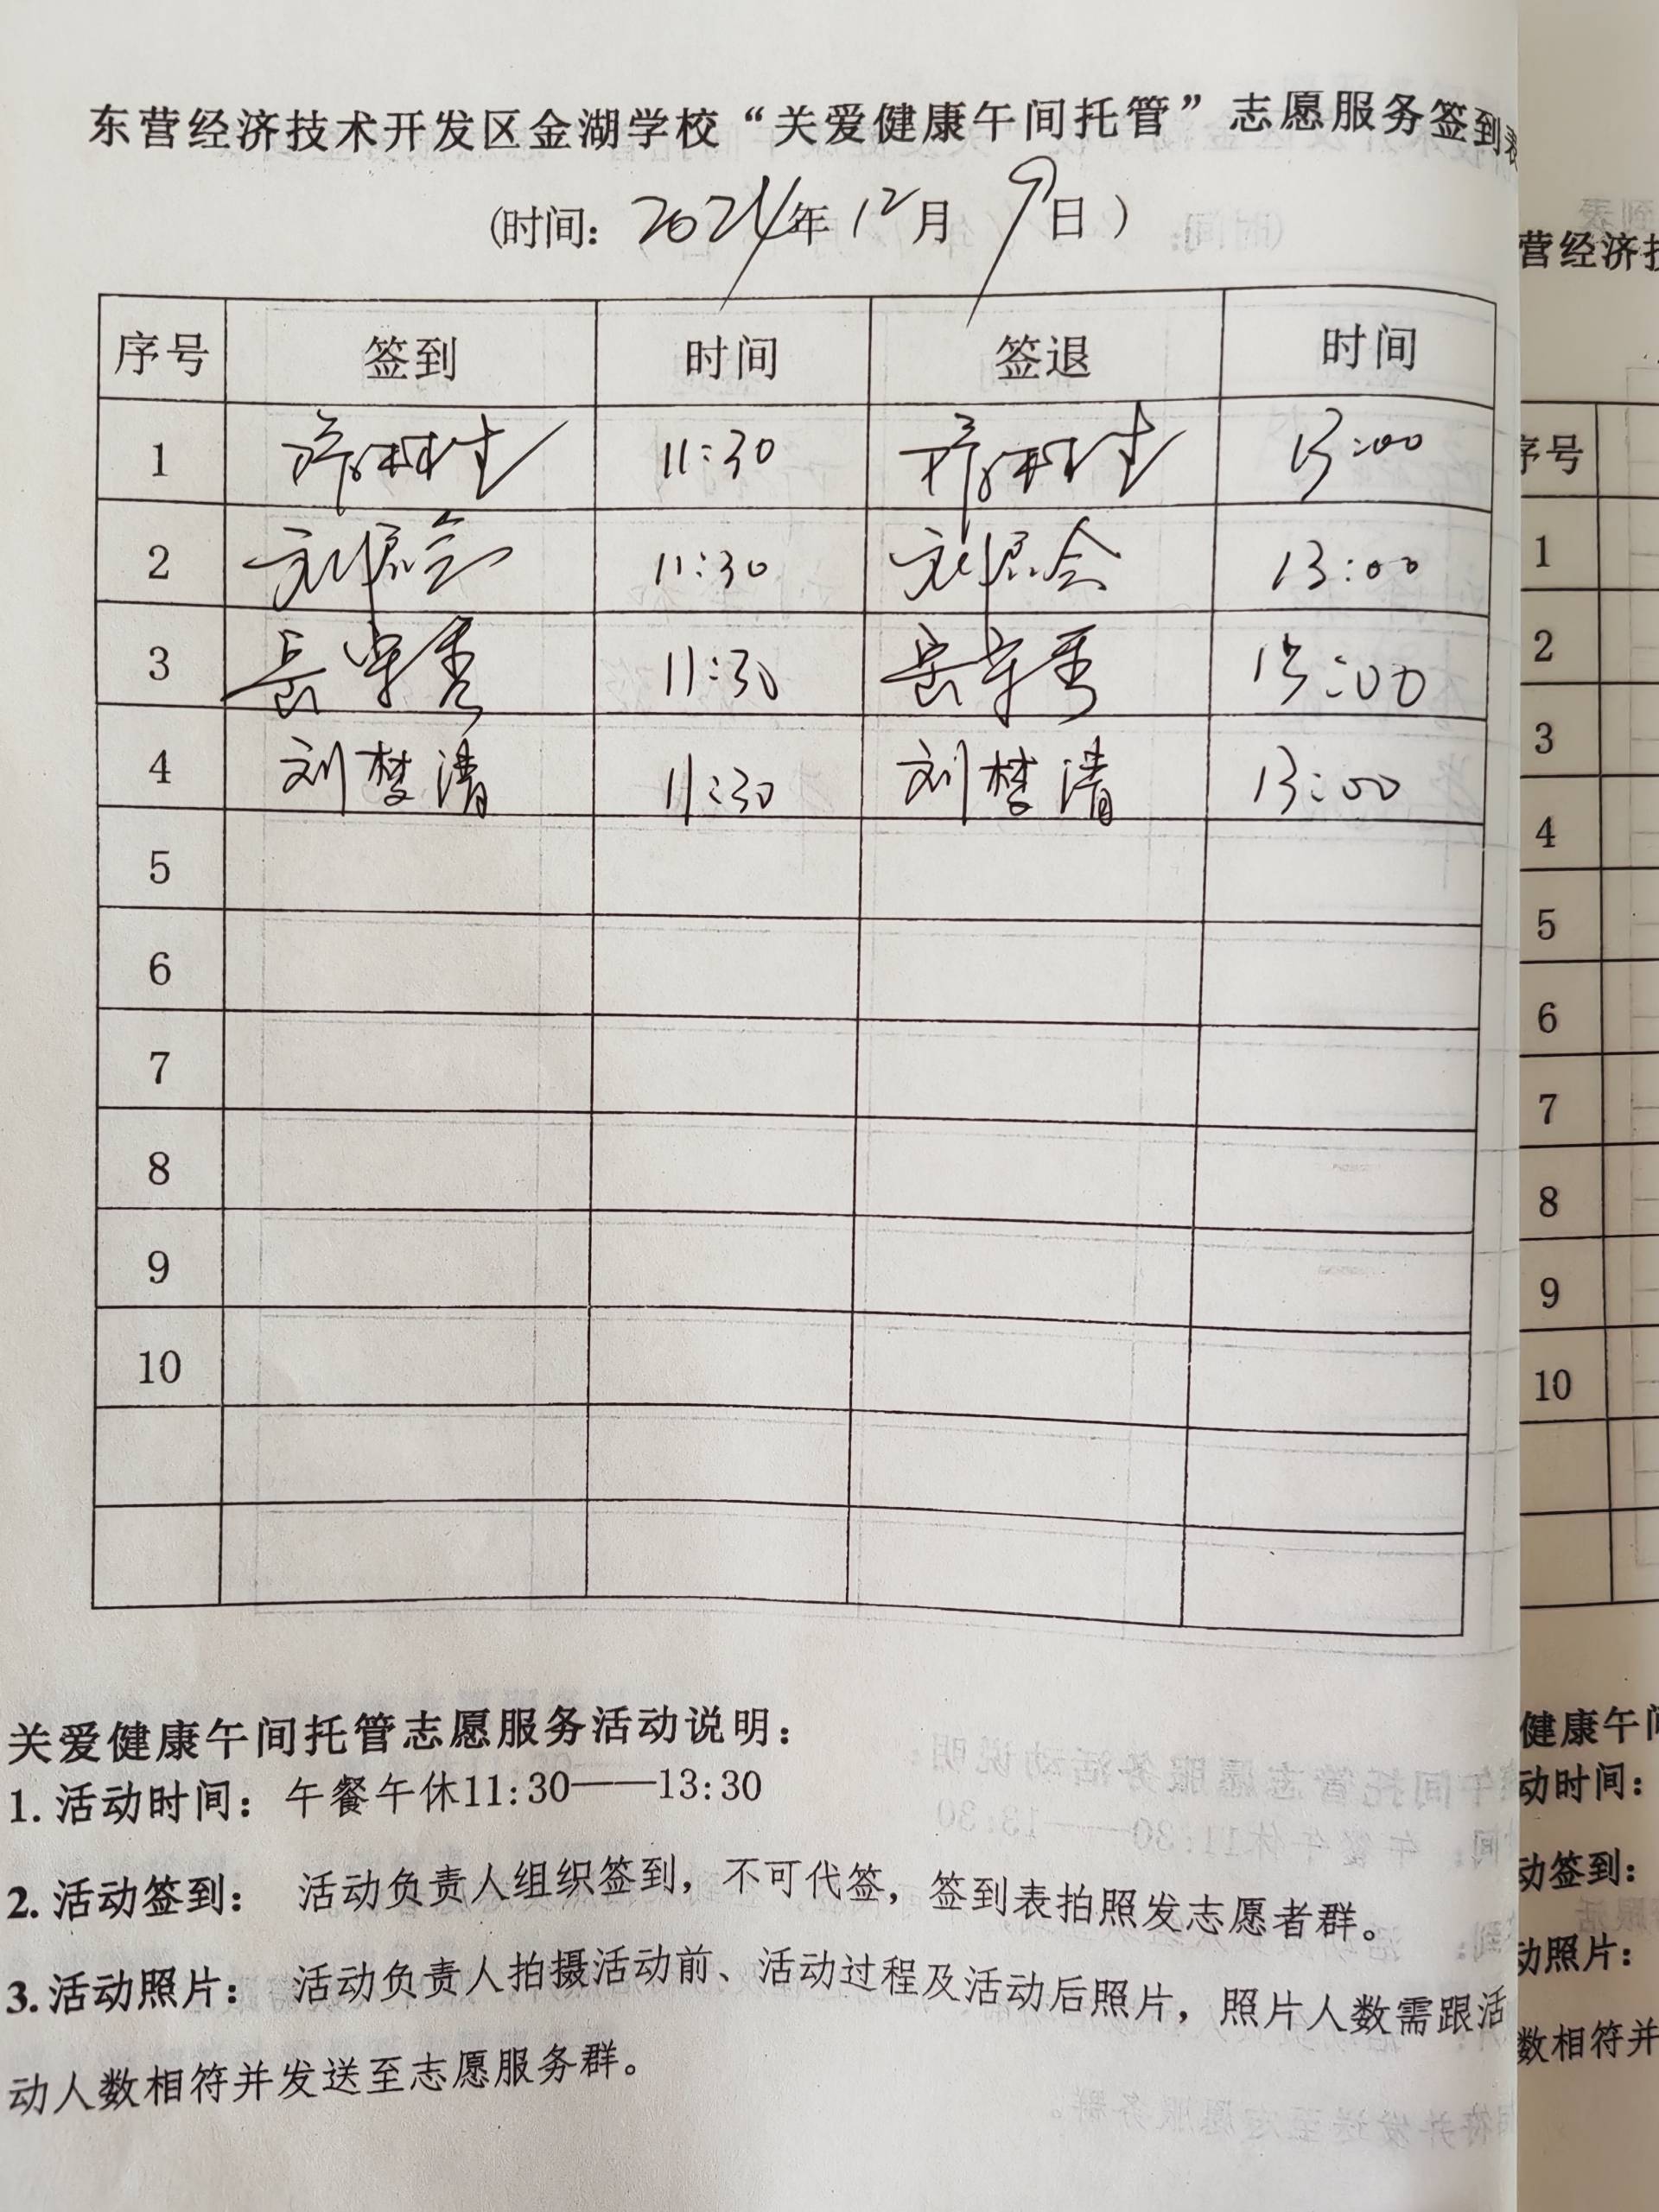 东营经济技术开发区金湖学校“关爱健康午间托管”志愿服务签到表
(时间: 2024年12月9日)
序号 签到 时间 签退 时间
1 11:30 13:00
2 刘 11:30 刘 13:00
3 岳 11:30 岳 13:00
4 刘梦清 11:30 刘梦清 13:00
5
6
7
8
9
10
关爱健康午间托管志愿服务活动说明:
1. 活动时间: 午餐午休11:30——13:30
2. 活动签到: 活动负责人组织签到，不可代签，签到表拍照发志愿者群。
3. 活动照片: 活动负责人拍摄活动前、活动过程及活动后照片，照片人数需跟活
动人数相符并发送至志愿服务群。
营经济技
序号
1
2
3
4
5
6
7
8
9
10
健康午间
动时间:
动签到:
动照片:
数相符并